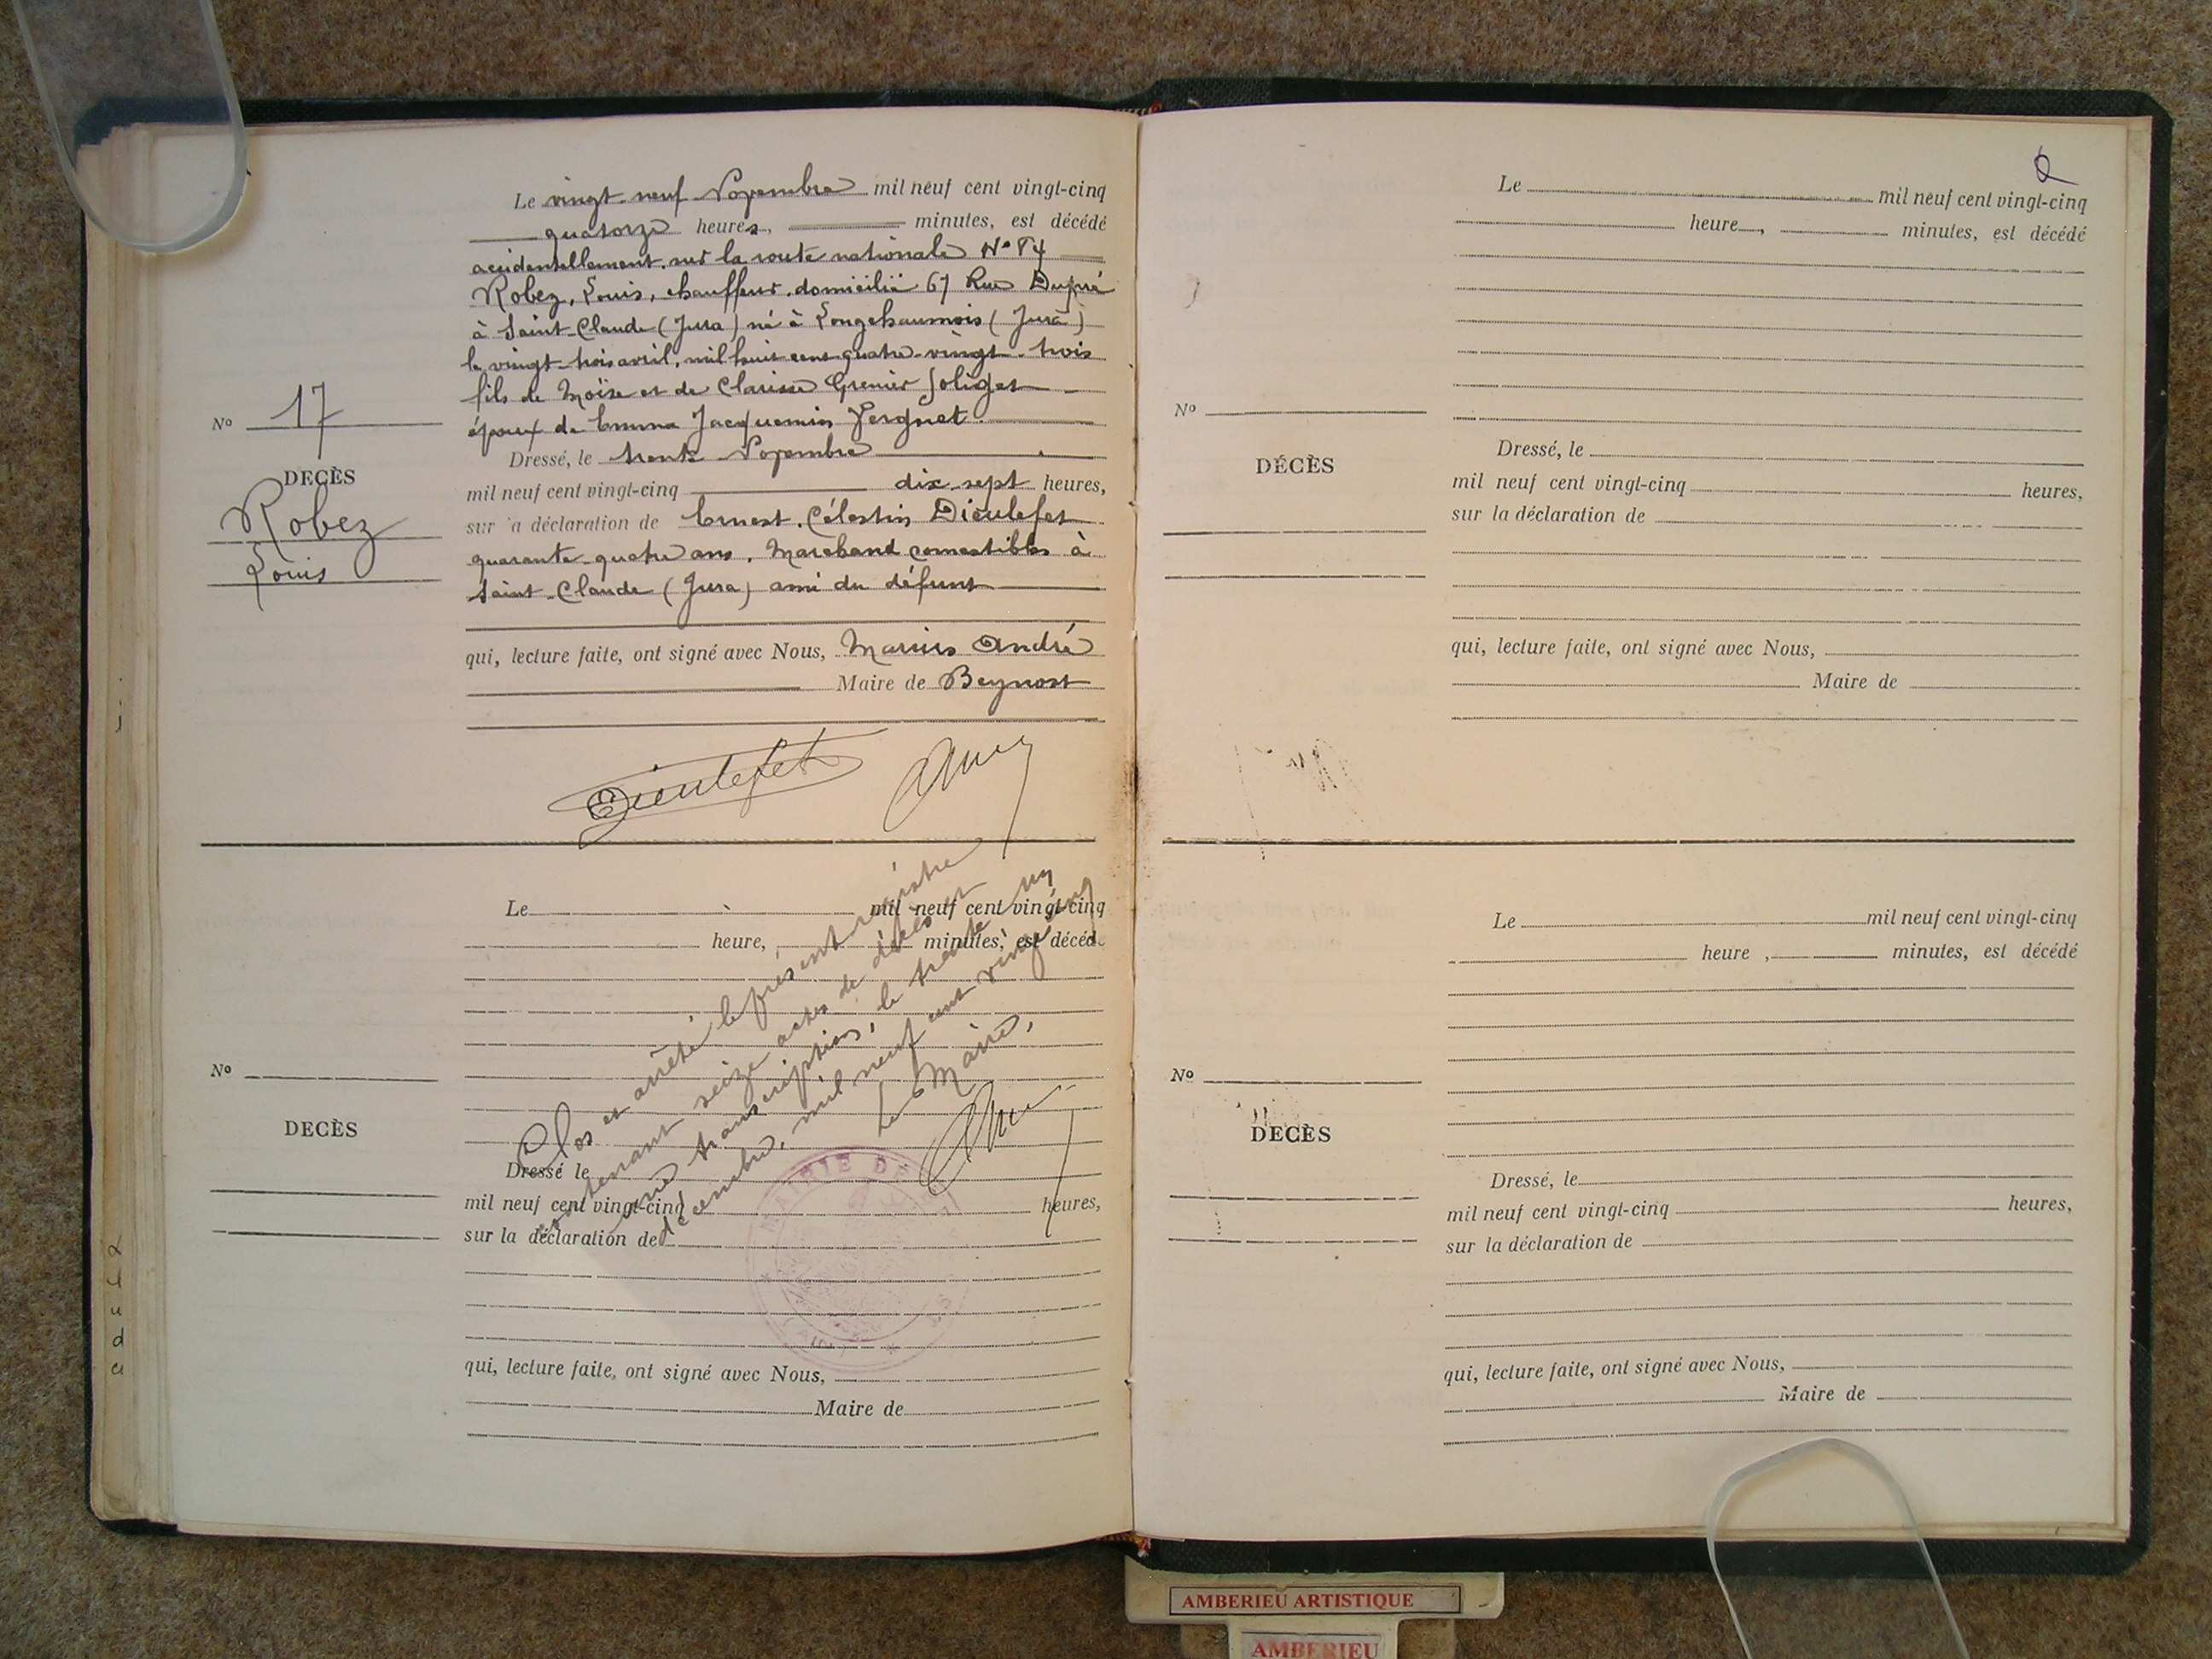 Le vingt-neuf Novembre mil neuf cent vingt-cinq
quatorze heures, minutes, est décédé
accidentellement, sur la route nationale N° 84
Robez, Louis, chauffeur, domicilié 67 Rue Dupré
à Saint-Claude (Jura) né à Longchaumois (Jura)
le vingt-trois avril, mil huit cent quatre-vingt-trois
fils de Moïse et de Clarisse Grenier Soliget
époux de Emma Jacquemin Verguet.
Dressé, le trente Novembre
mil neuf cent vingt-cinq dix-sept heures,
sur la déclaration de Ernest, Célestin Dieulefet
quarante-quatre ans, Marchand comestibles à
Saint-Claude (Jura) ami du défunt
qui, lecture faite, ont signé avec Nous, Marius André
Maire de Beynost
Dieulefet
N° 17
DECÈS
Robez
Louis
Le mil neuf cent vingt-cinq
heure, minutes, est décédé
Dressé le
mil neuf cent vingt-cinq heures,
sur la déclaration de
qui, lecture faite, ont signé avec Nous,
Maire de
N°
DECÈS
Clos et arrêté le présent registre
contenant seize actes de décès et
une transcription, le trente un
décembre, mil neuf cent vingt-cinq
Le Maire,
MAIRIE DE
Le mil neuf cent vingt-cinq
heure, minutes, est décédé
Dressé, le
mil neuf cent vingt-cinq heures,
sur la déclaration de
qui, lecture faite, ont signé avec Nous,
Maire de
N°
DÉCÈS
Le mil neuf cent vingt-cinq
heure, minutes, est décédé
Dressé, le
mil neuf cent vingt-cinq heures,
sur la déclaration de
qui, lecture faite, ont signé avec Nous,
Maire de
N°
DECÈS
AMBERIEU ARTISTIQUE
AMBERIEU